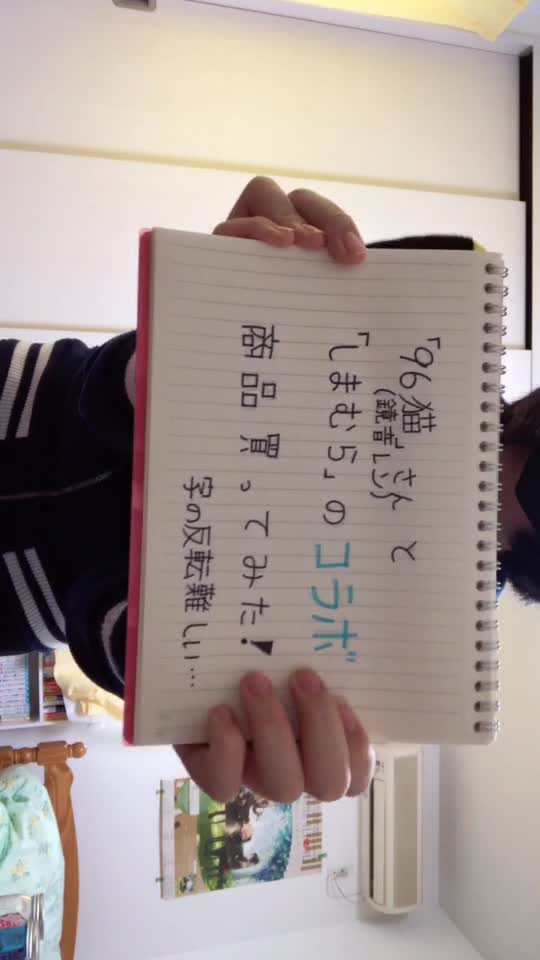 「96猫」さん と
(鏡音レン)
「しまむら」の コラボ
商品 買ってみた!
字の反転難しい…